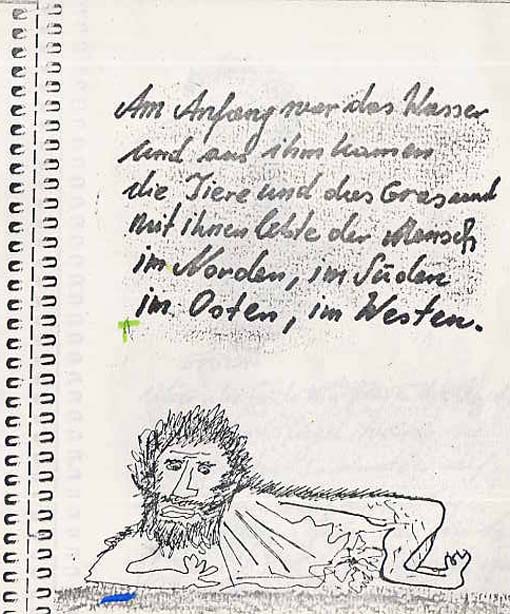 Am Anfang war das Wasser
und aus ihm kamen
die Tiere und das Gras und
mit ihnen lebte der Mensch
im Norden, im Süden
im Osten, im Westen.